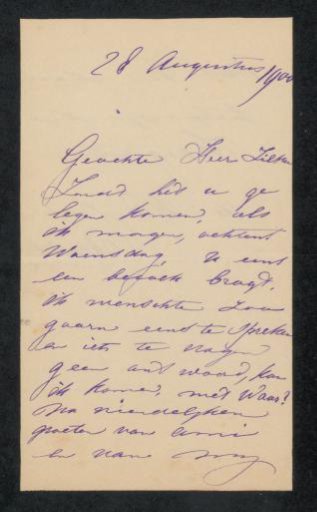 28 Augustus 1900
Geachte Heer Zilken
Zoud het u ge
legen komen, als
ik morgen, ochtent
Woensdag, u eens
een bezoek bragt.
ik wenschte zoo
gaarn eens te spreken
en iets te vragen
geen antwoord, kan
ik komen, niet Waar?
Na vriendelijken
groeten van
en van mij